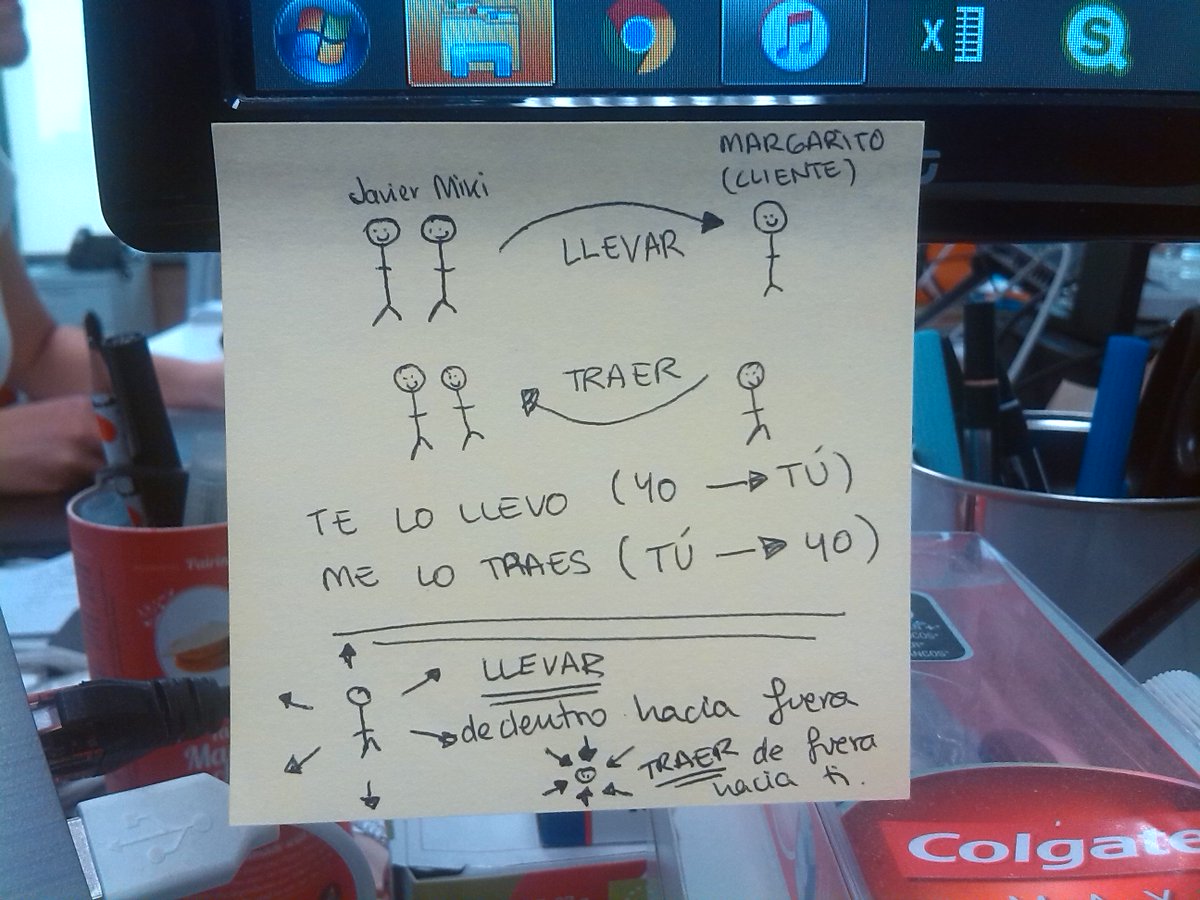 Javier Miki
MARGARITO
(CLIENTE)
LLEVAR
TRAER
TE LO LLEVO (YO → TÚ)
ME LO TRAES (TÚ → YO)
LLEVAR
de dentro hacia fuera
TRAER de fuera
hacia ti.
Colgate